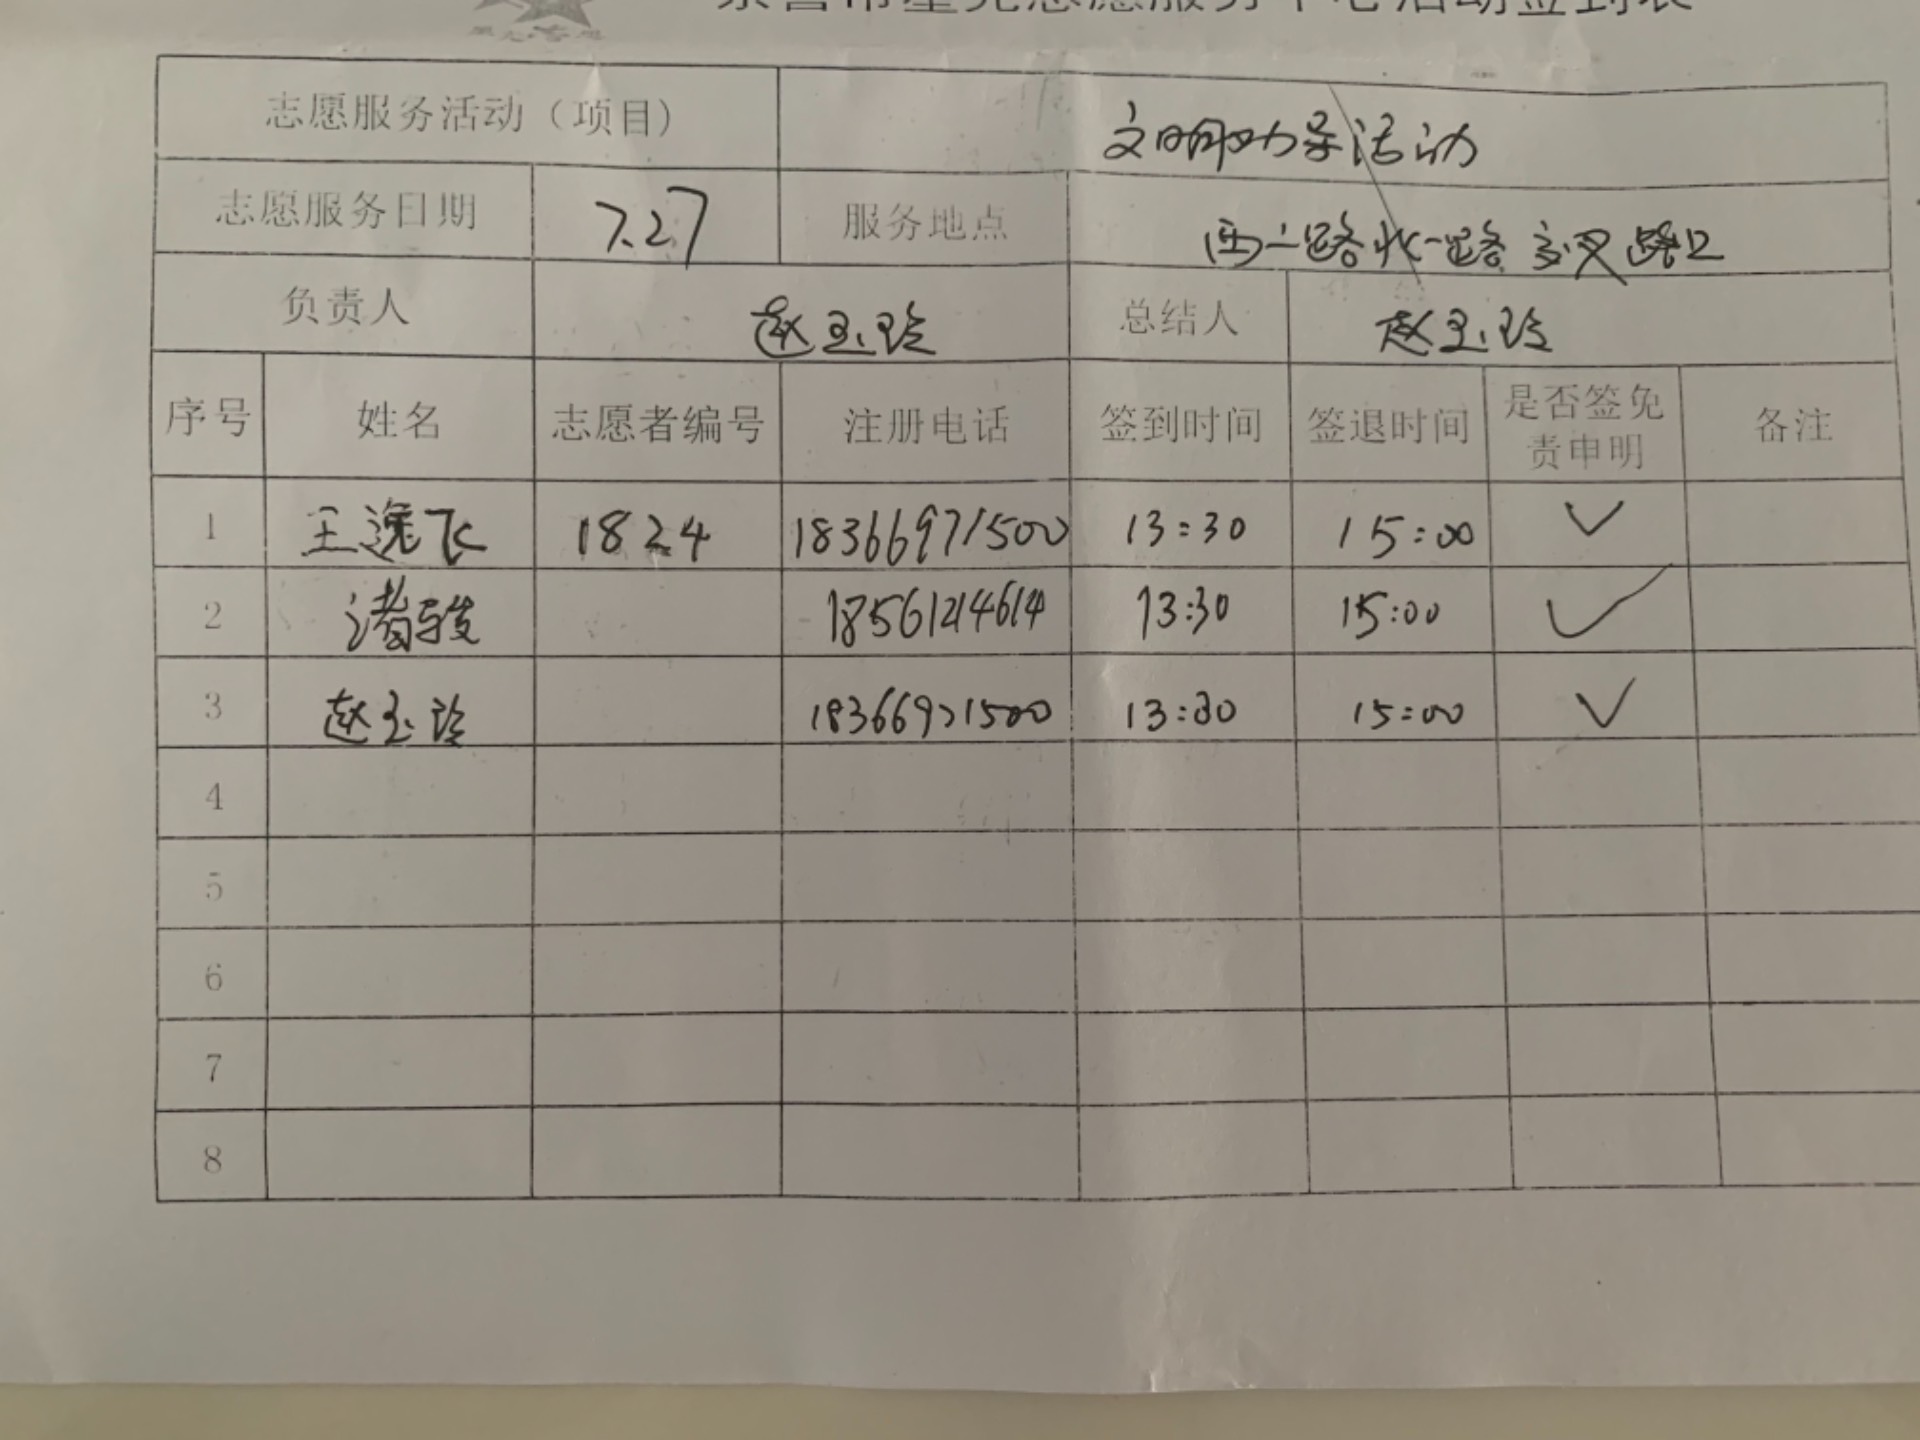 志愿服务活动（项目） 文明劝导活动
志愿服务日期 7.27 服务地点 西二路北一路交叉路口
负责人 赵玉玲 总结人 赵玉玲
序号 姓名 志愿者编号 注册电话 签到时间 签退时间 是否签免责申明 备注
1 王逸飞 1824 18366971500 13:30 15:00 ✓
2 18561214614 13:30 15:00 ✓
3 赵玉玲 18366971500 13:30 15:00 ✓
4
5
6
7
8